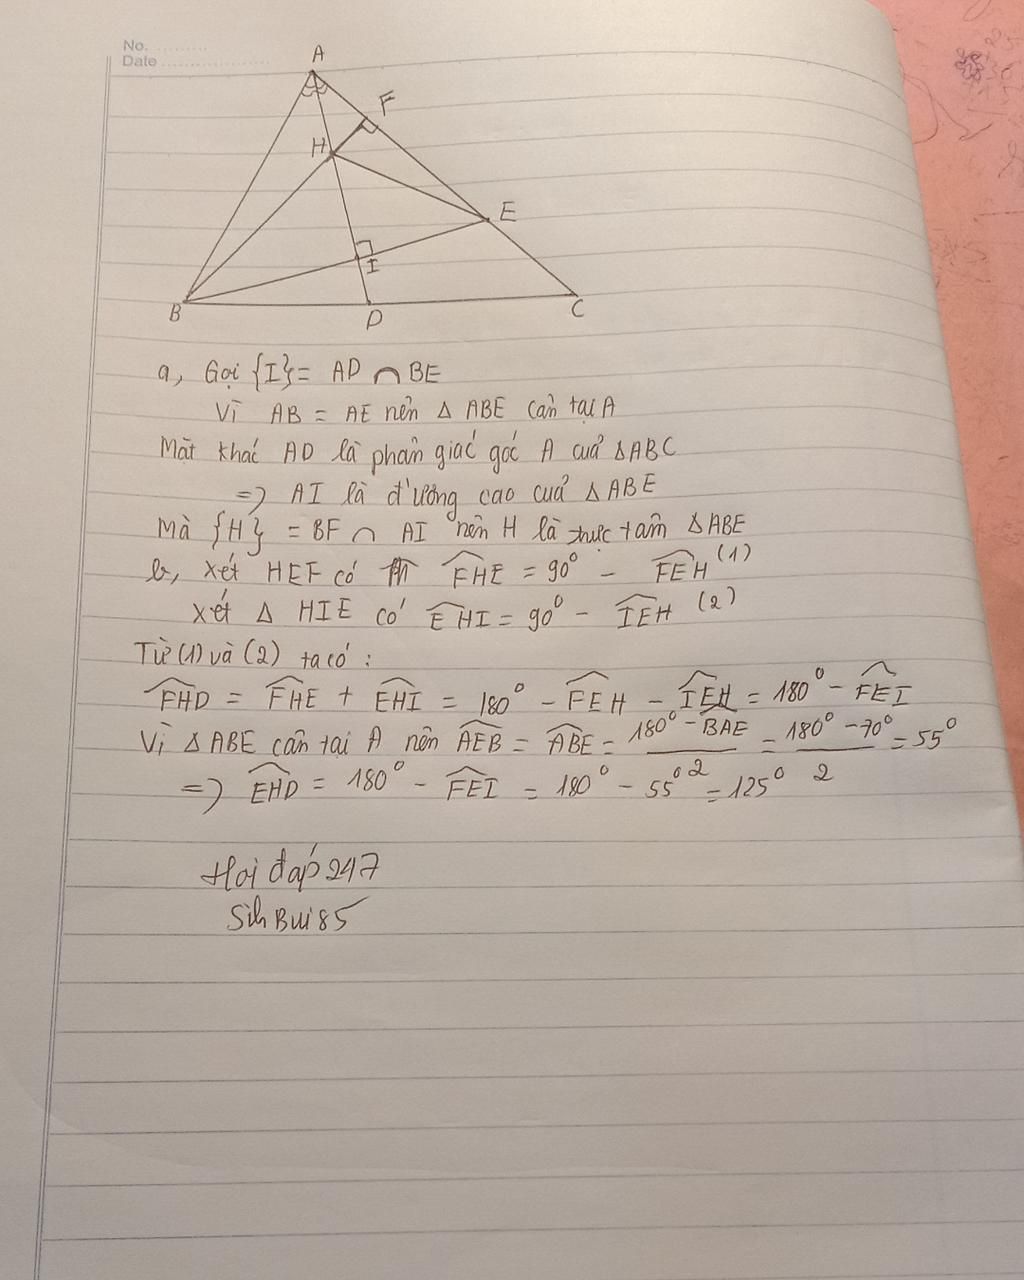 No. ..........
Date .....................
A
F
H
E
I
B
D
C
a, Gọi {I} = AD ∩ BE
Vì AB = AE nên Δ ABE cân tại A
Mặt khác AD là phân giác góc A của ΔABC
=> AI là đường cao của Δ ABE
Mà {H} = BF ∩ AI nên H là trực tâm ΔABE
b, Xét HEF có \widehat{FHE} = 90° - \widehat{FEH} (1)
Xét Δ HIE có \widehat{EHI} = 90° - \widehat{IEH} (2)
Từ (1) và (2) ta có :
\widehat{FHD} = \widehat{FHE} + \widehat{EHI} = 180° - \widehat{FEH} - \widehat{IEH} = 180° - \widehat{FEI}
Vì Δ ABE cân tại A nên \widehat{AEB} = \widehat{ABE} = \frac{180° - \widehat{BAE}}{2} = \frac{180° - 70°}{2} = 55°
=> \widehat{EHD} = 180° - \widehat{FEI} = 180° - 55° = 125°
Hoi đáp 247
Sinh Bui 85